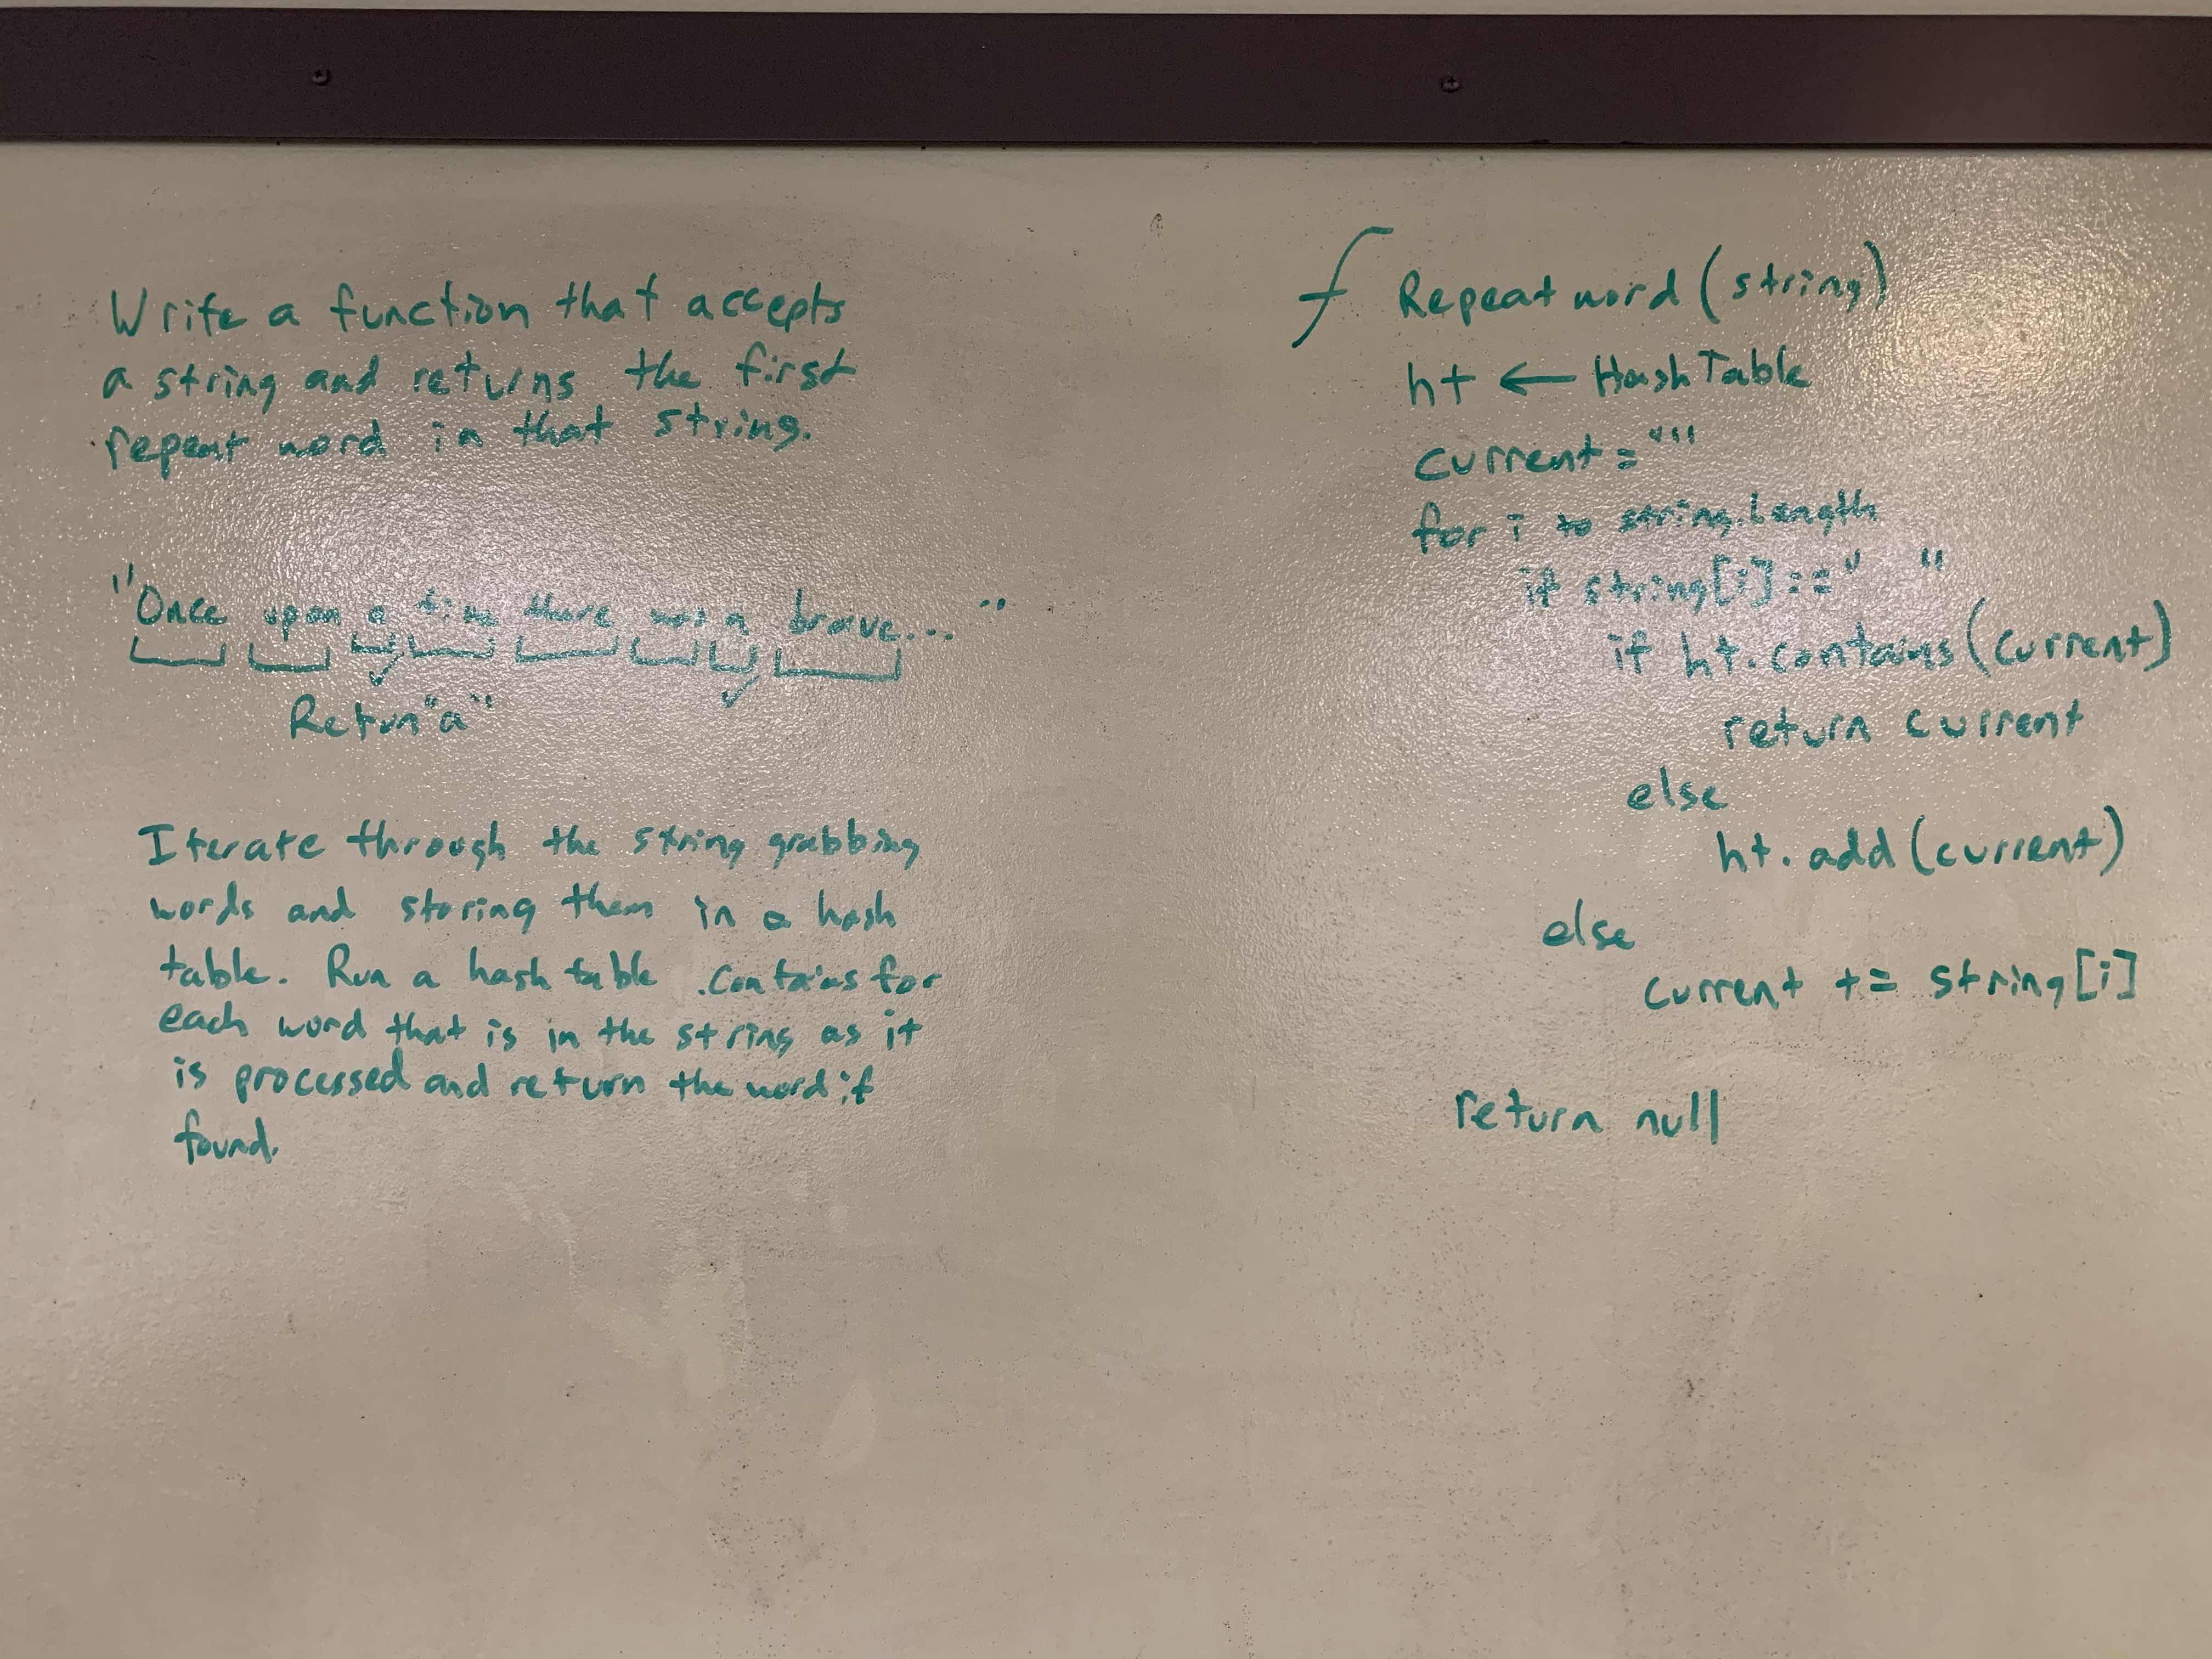 Write a function that accepts
a string and returns the first
repeat word in that string.
"Once upon a time there was a brave... "
Return "a"
Iterate through the string grabbing
words and storing them in a hash
table. Run a hash table .contains for
each word that is in the string as it
is processed and return the word if
found.
f Repeat word (string)
ht ← HashTable
current = ""
for i to string.length
if string[i] == " "
if ht.contains (current)
return current
else
ht.add (current)
else
current += string[i]
return null